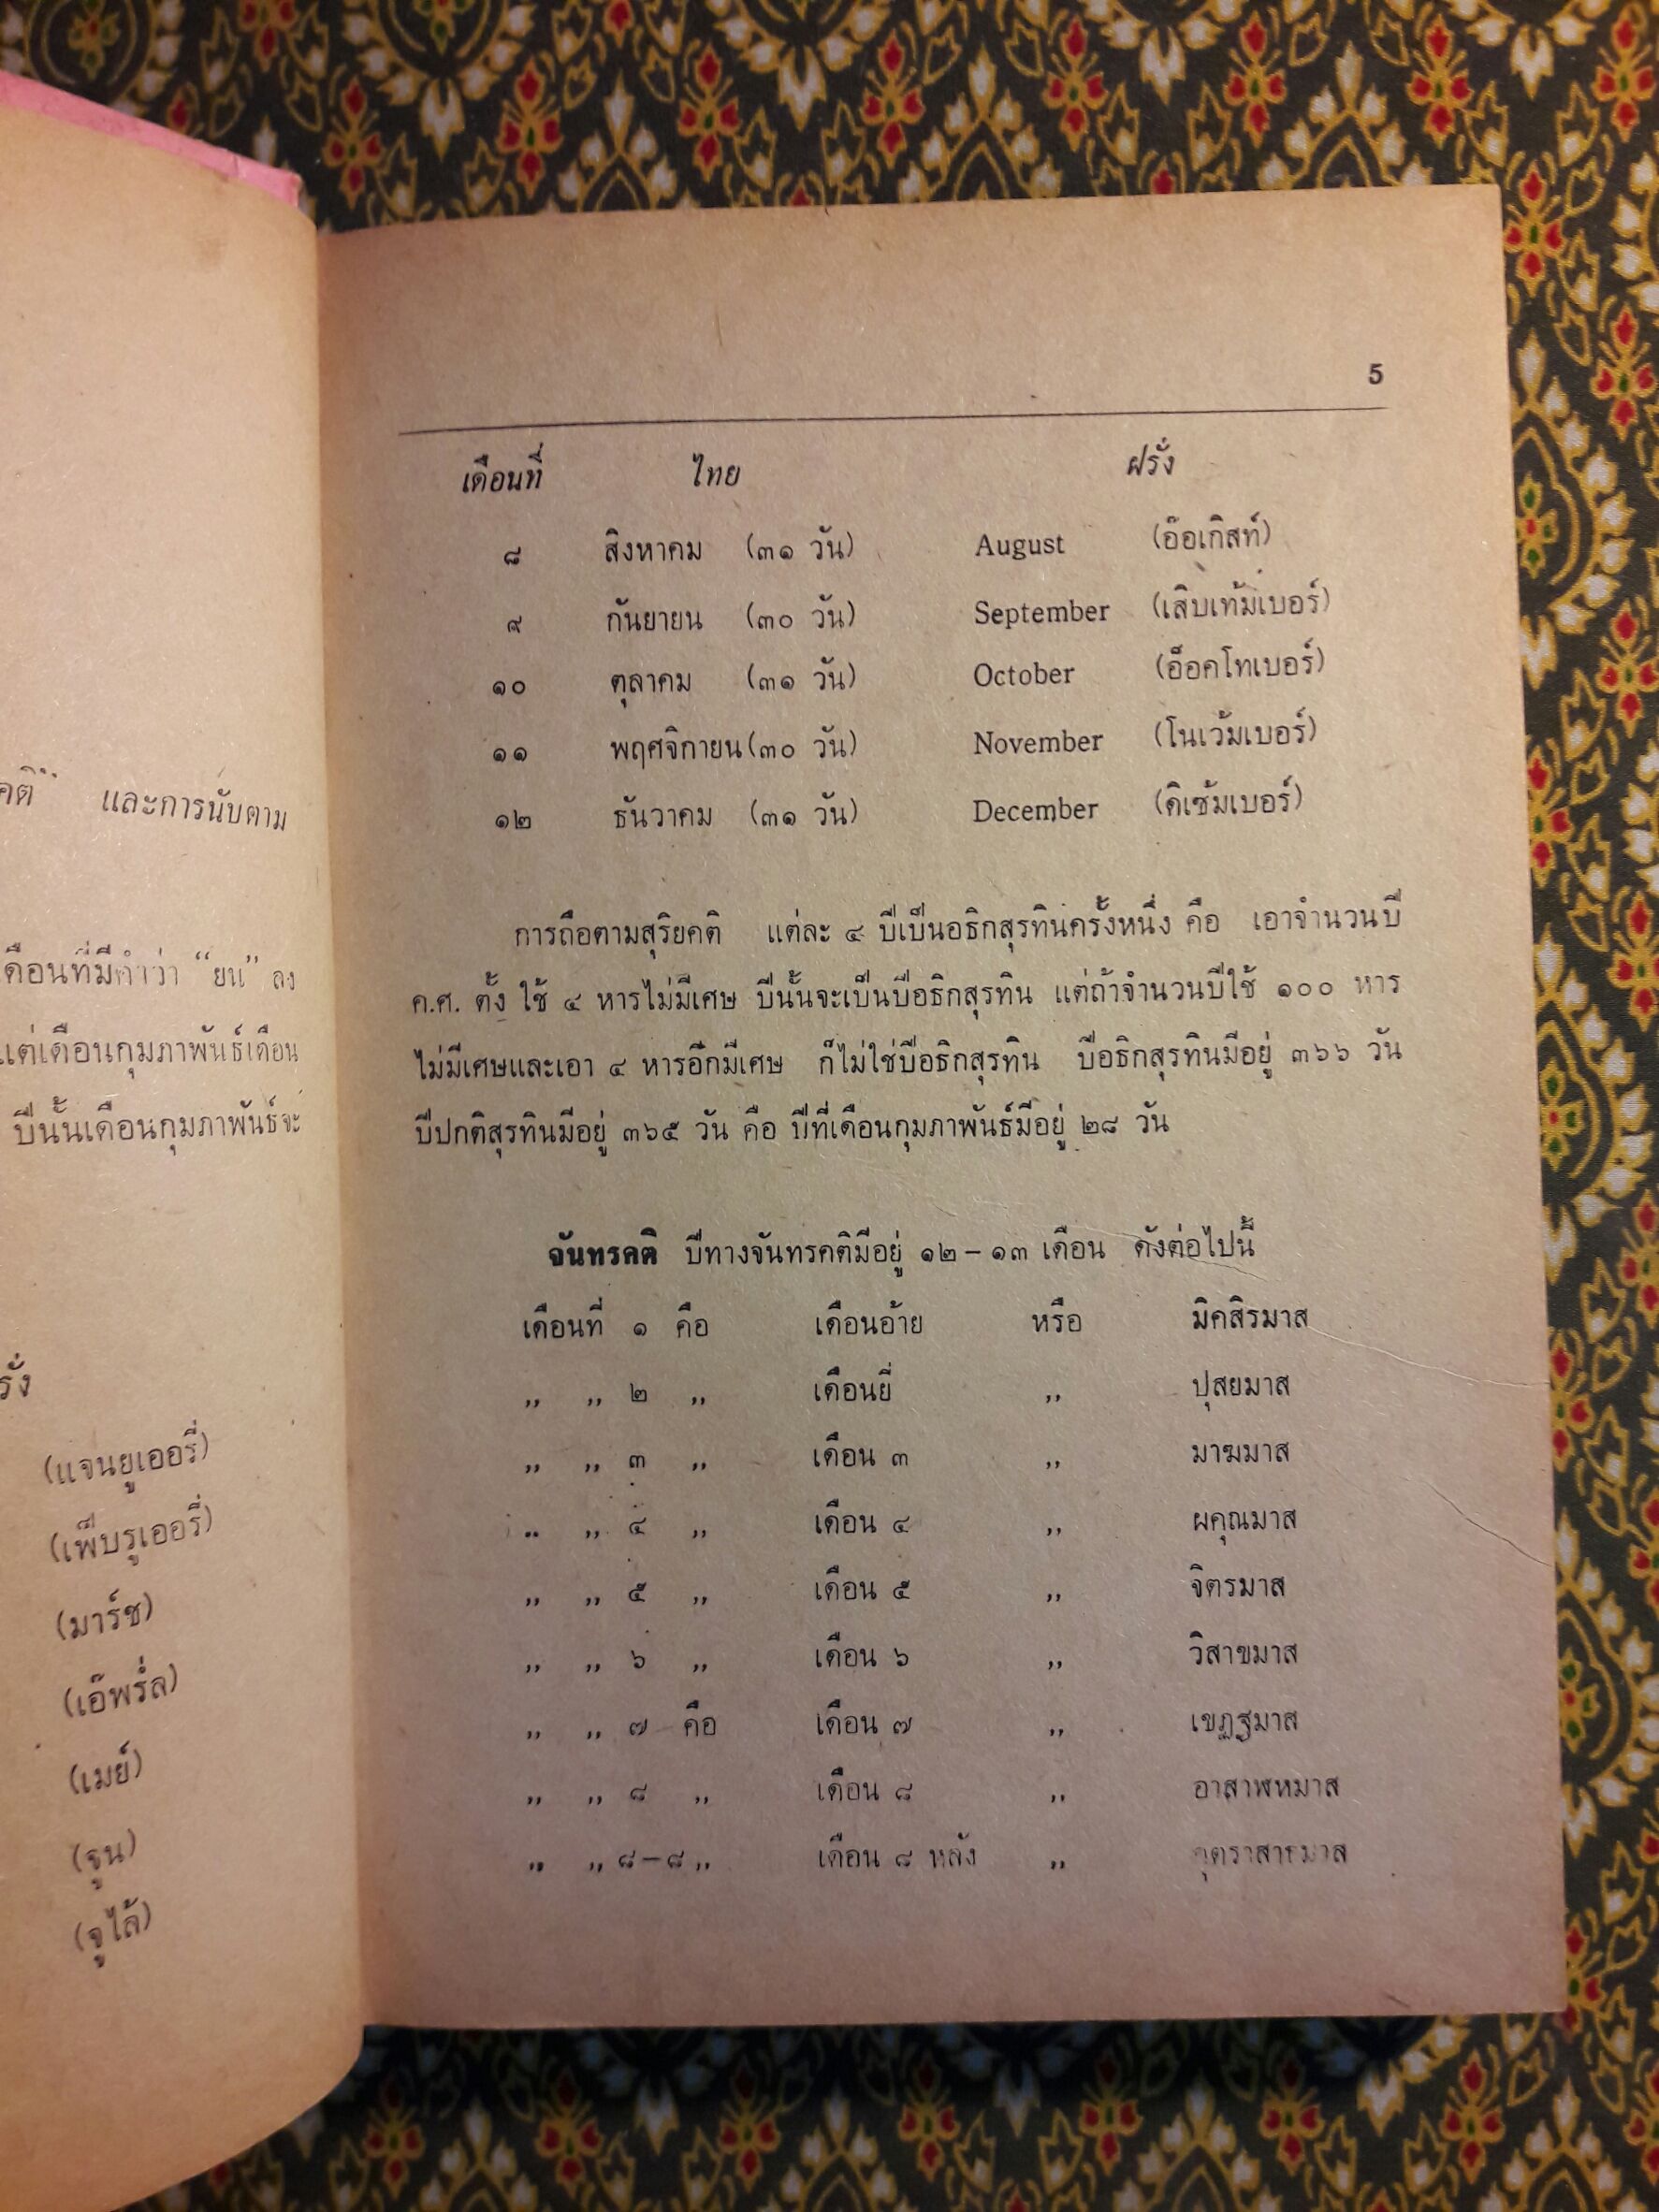 คติ และการนับตาม
เดือนที่มีคำว่า “ยน” ลง
แต่เดือนกุมภาพันธ์เดือน
ปีนั้นเดือนกุมภาพันธ์จะ
รั่ง
(แจนยูเออรี่)
(เพ็บรูเออรี่)
(มาร์ช)
(เอ๊พรึ่ล)
(เมย์)
(จูน)
(จูไล้)
5
เดือนที่ ไทย ฝรั่ง
๘ สิงหาคม (๓๑ วัน) August (อ๊อเกิสท์)
๙ กันยายน (๓๐ วัน) September (เส็บเท้มเบอร์)
๑๐ ตุลาคม (๓๑ วัน) October (อ็อคโทเบอร์)
๑๑ พฤศจิกายน (๓๐ วัน) November (โนเว้มเบอร์)
๑๒ ธันวาคม (๓๑ วัน) December (ดิเซ้มเบอร์)
การถือตามสุริยคติ แต่ละ ๔ ปีเป็นอธิกสุรทินครั้งหนึ่ง คือ เอาจำนวนปี
ค.ศ. ตั้ง ใช้ ๔ หารไม่มีเศษ ปีนั้นจะเป็นปีอธิกสุรทิน แต่ถ้าจำนวนปีใช้ ๑๐๐ หาร
ไม่มีเศษและเอา ๔ หารอีกมีเศษ ก็ไม่ใช่ปีอธิกสุรทิน ปีอธิกสุรทินมีอยู่ ๓๖๖ วัน
ปีปกติสุรทินมีอยู่ ๓๖๕ วัน คือ ปีที่เดือนกุมภาพันธ์มีอยู่ ๒๘ วัน
จันทรคติ ปีทางจันทรคติมีอยู่ ๑๒ – ๑๓ เดือน ดังต่อไปนี้
เดือนที่ ๑ คือ เดือนอ้าย หรือ มิคสิรมาส
,, ,, ๒ ,, เดือนยี่ ,, ปุสยมาส
,, ,, ๓ ,, เดือน ๓ ,, มาฆมาส
,, ,, ๔ ,, เดือน ๔ ,, ผคุณมาส
,, ,, ๕ ,, เดือน ๕ ,, จิตรมาส
,, ,, ๖ ,, เดือน ๖ ,, วิสาขมาส
,, ,, ๗ คือ เดือน ๗ ,, เชฏฐมาส
,, ,, ๘ ,, เดือน ๘ ,, อาสาฬหมาส
,, ,, ๘–๘ ,, เดือน ๘ หลัง ,,